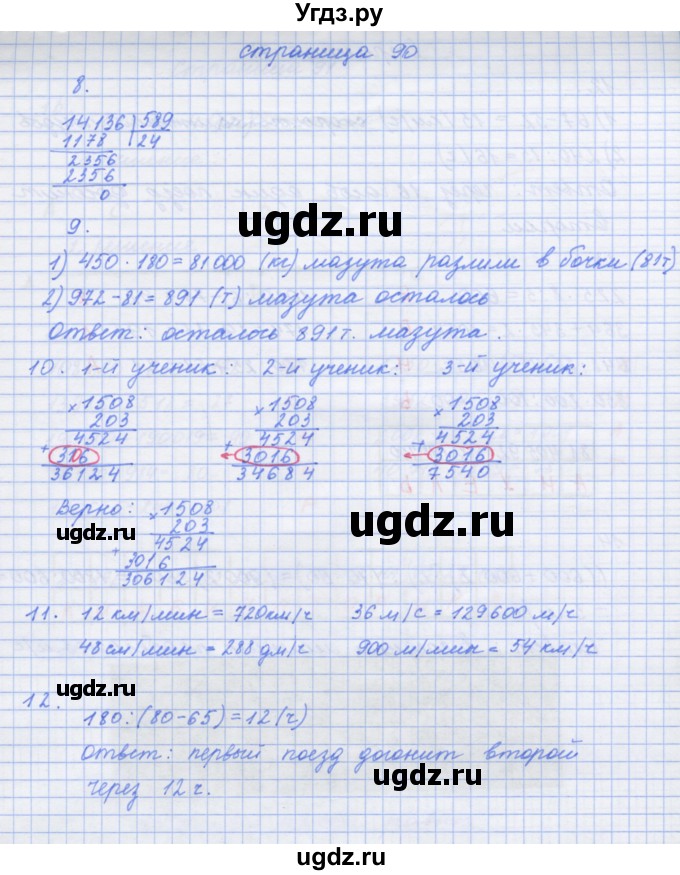 Угдз.ру
страница 90
8.
14136 589
1178 24
2356
2356
0
ugdz.ru
ugdz.ru
9.
1) 450 · 180 = 81000 (кг) мазута разлили в бочки (81т)
2) 972 - 81 = 891 (т) мазута осталось
Ответ: осталось 891 т. мазута.
ugdz.ru
10. 1-й ученик: 2-й ученик: 3-й ученик:
× 1508 × 1508 × 1508
203 203 203
4524 4524 4524
+ 316 + 3016 + 3016
36124 34684 7540
ugdz.ru
ugdz.ru
Верно: × 1508
203
4524
+ 3016
306124
ugdz.ru
ugdz.ru
11. 12 км/мин = 720 км/ч 36 м/с = 129600 м/ч
48 см/мин = 288 дм/ч 900 м/мин = 54 км/ч
ugdz.ru
12.
180 : (80-65) = 12 (ч)
Ответ: первый поезд догонит второй
через 12 ч.
ugdz.ru
ugdz.ru
ugdz.ru